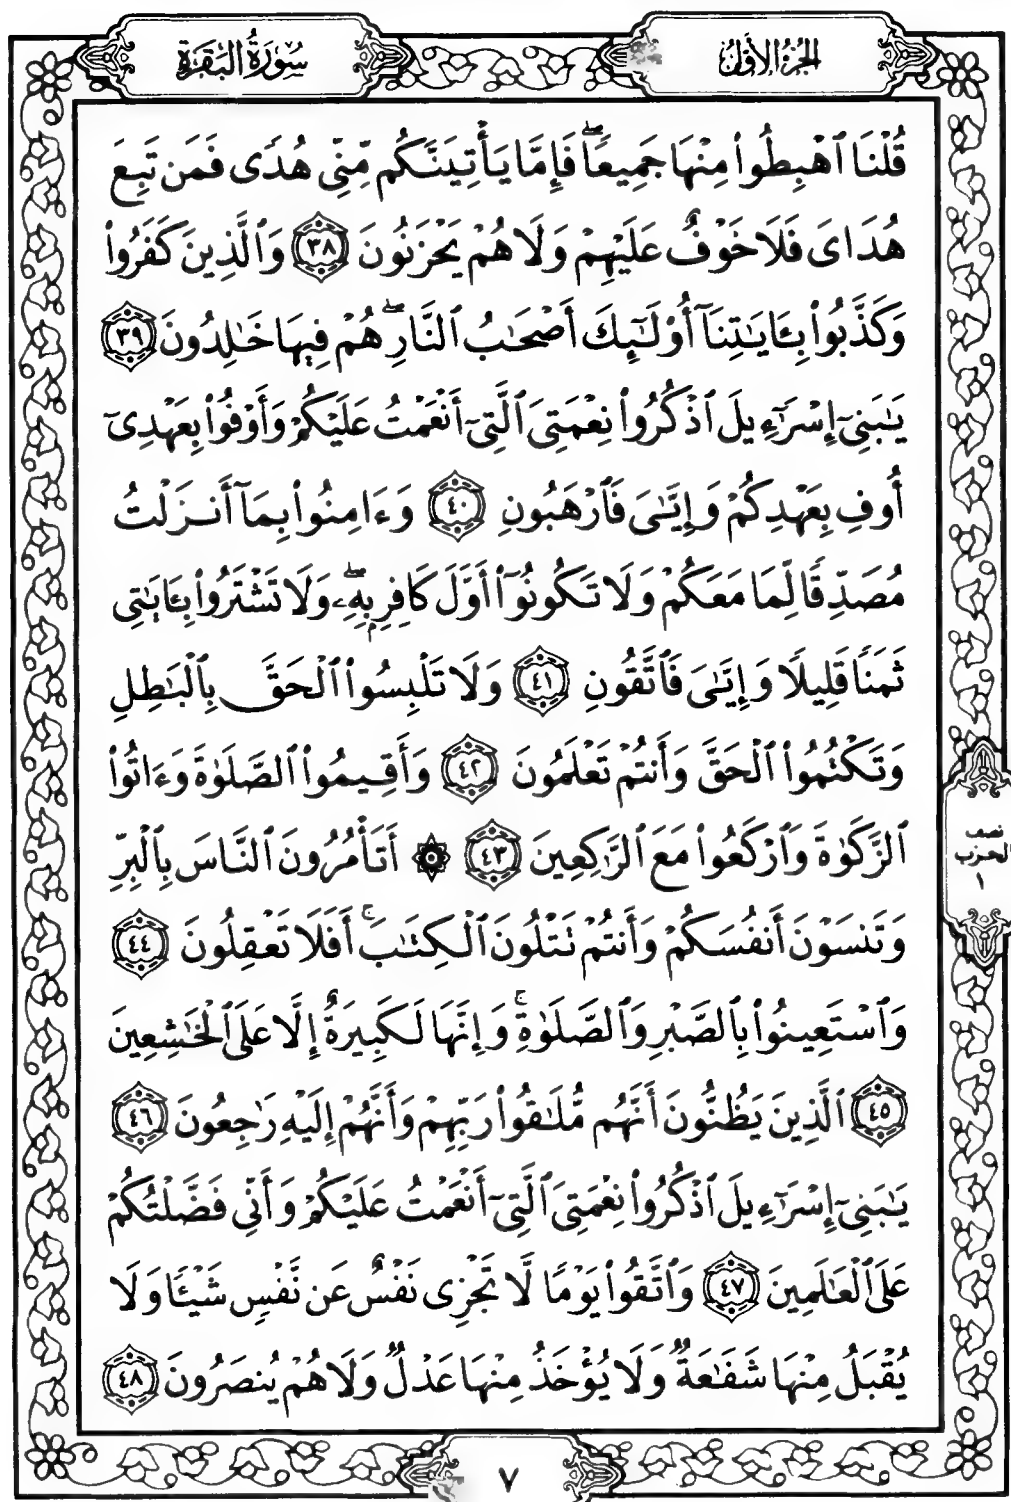 الجزء الأول
سورة البقرة
قُلْنَا ٱهْبِطُوا۟ مِنْهَا جَمِيعًۭا ۖ فَإِمَّا يَأْتِيَنَّكُم مِّنِّى هُدًۭى فَمَن تَبِعَ
هُدَاىَ فَلَا خَوْفٌ عَلَيْهِمْ وَلَا هُمْ يَحْزَنُونَ ٣٨ وَٱلَّذِينَ كَفَرُوا۟
وَكَذَّبُوا۟ بِـَٔايَـٰتِنَآ أُو۟لَـٰٓئِكَ أَصْحَـٰبُ ٱلنَّارِ ۖ هُمْ فِيهَا خَـٰلِدُونَ ٣٩
يَـٰبَنِىٓ إِسْرَٰٓءِيلَ ٱذْكُرُوا۟ نِعْمَتِىَ ٱلَّتِىٓ أَنْعَمْتُ عَلَيْكُمْ وَأَوْفُوا۟ بِعَهْدِىٓ
أُوفِ بِعَهْدِكُمْ وَإِيَّـٰىَ فَٱرْهَبُونِ ٤٠ وَءَامِنُوا۟ بِمَآ أَنزَلْتُ
مُصَدِّقًۭا لِّمَا مَعَكُمْ وَلَا تَكُونُوٓا۟ أَوَّلَ كَافِرٍۭ بِهِۦ ۖ وَلَا تَشْتَرُوا۟ بِـَٔايَـٰتِى
ثَمَنًۭا قَلِيلًۭا وَإِيَّـٰىَ فَٱتَّقُونِ ٤١ وَلَا تَلْبِسُوا۟ ٱلْحَقَّ بِٱلْبَـٰطِلِ
وَتَكْتُمُوا۟ ٱلْحَقَّ وَأَنتُمْ تَعْلَمُونَ ٤٢ وَأَقِيمُوا۟ ٱلصَّلَوٰةَ وَءَاتُوا۟
ٱلزَّكَوٰةَ وَٱرْكَعُوا۟ مَعَ ٱلرَّٰكِعِينَ ٤٣ ۞ أَتَأْمُرُونَ ٱلنَّاسَ بِٱلْبِرِّ
نصف
الحزب
١
وَتَنسَوْنَ أَنفُسَكُمْ وَأَنتُمْ تَتْلُونَ ٱلْكِتَـٰبَ ۚ أَفَلَا تَعْقِلُونَ ٤٤
وَٱسْتَعِينُوا۟ بِٱلصَّبْرِ وَٱلصَّلَوٰةِ ۚ وَإِنَّهَا لَكَبِيرَةٌ إِلَّا عَلَى ٱلْخَـٰشِعِينَ
٤٥ ٱلَّذِينَ يَظُنُّونَ أَنَّهُم مُّلَـٰقُوا۟ رَبِّهِمْ وَأَنَّهُمْ إِلَيْهِ رَٰجِعُونَ ٤٦
يَـٰبَنِىٓ إِسْرَٰٓءِيلَ ٱذْكُرُوا۟ نِعْمَتِىَ ٱلَّتِىٓ أَنْعَمْتُ عَلَيْكُمْ وَأَنِّى فَضَّلْتُكُمْ
عَلَى ٱلْعَـٰلَمِينَ ٤٧ وَٱتَّقُوا۟ يَوْمًۭا لَّا تَجْزِى نَفْسٌ عَن نَّفْسٍۢ شَيْـًۭٔا وَلَا
يُقْبَلُ مِنْهَا شَفَـٰعَةٌۭ وَلَا يُؤْخَذُ مِنْهَا عَدْلٌۭ وَلَا هُمْ يُنصَرُونَ ٤٨
٧